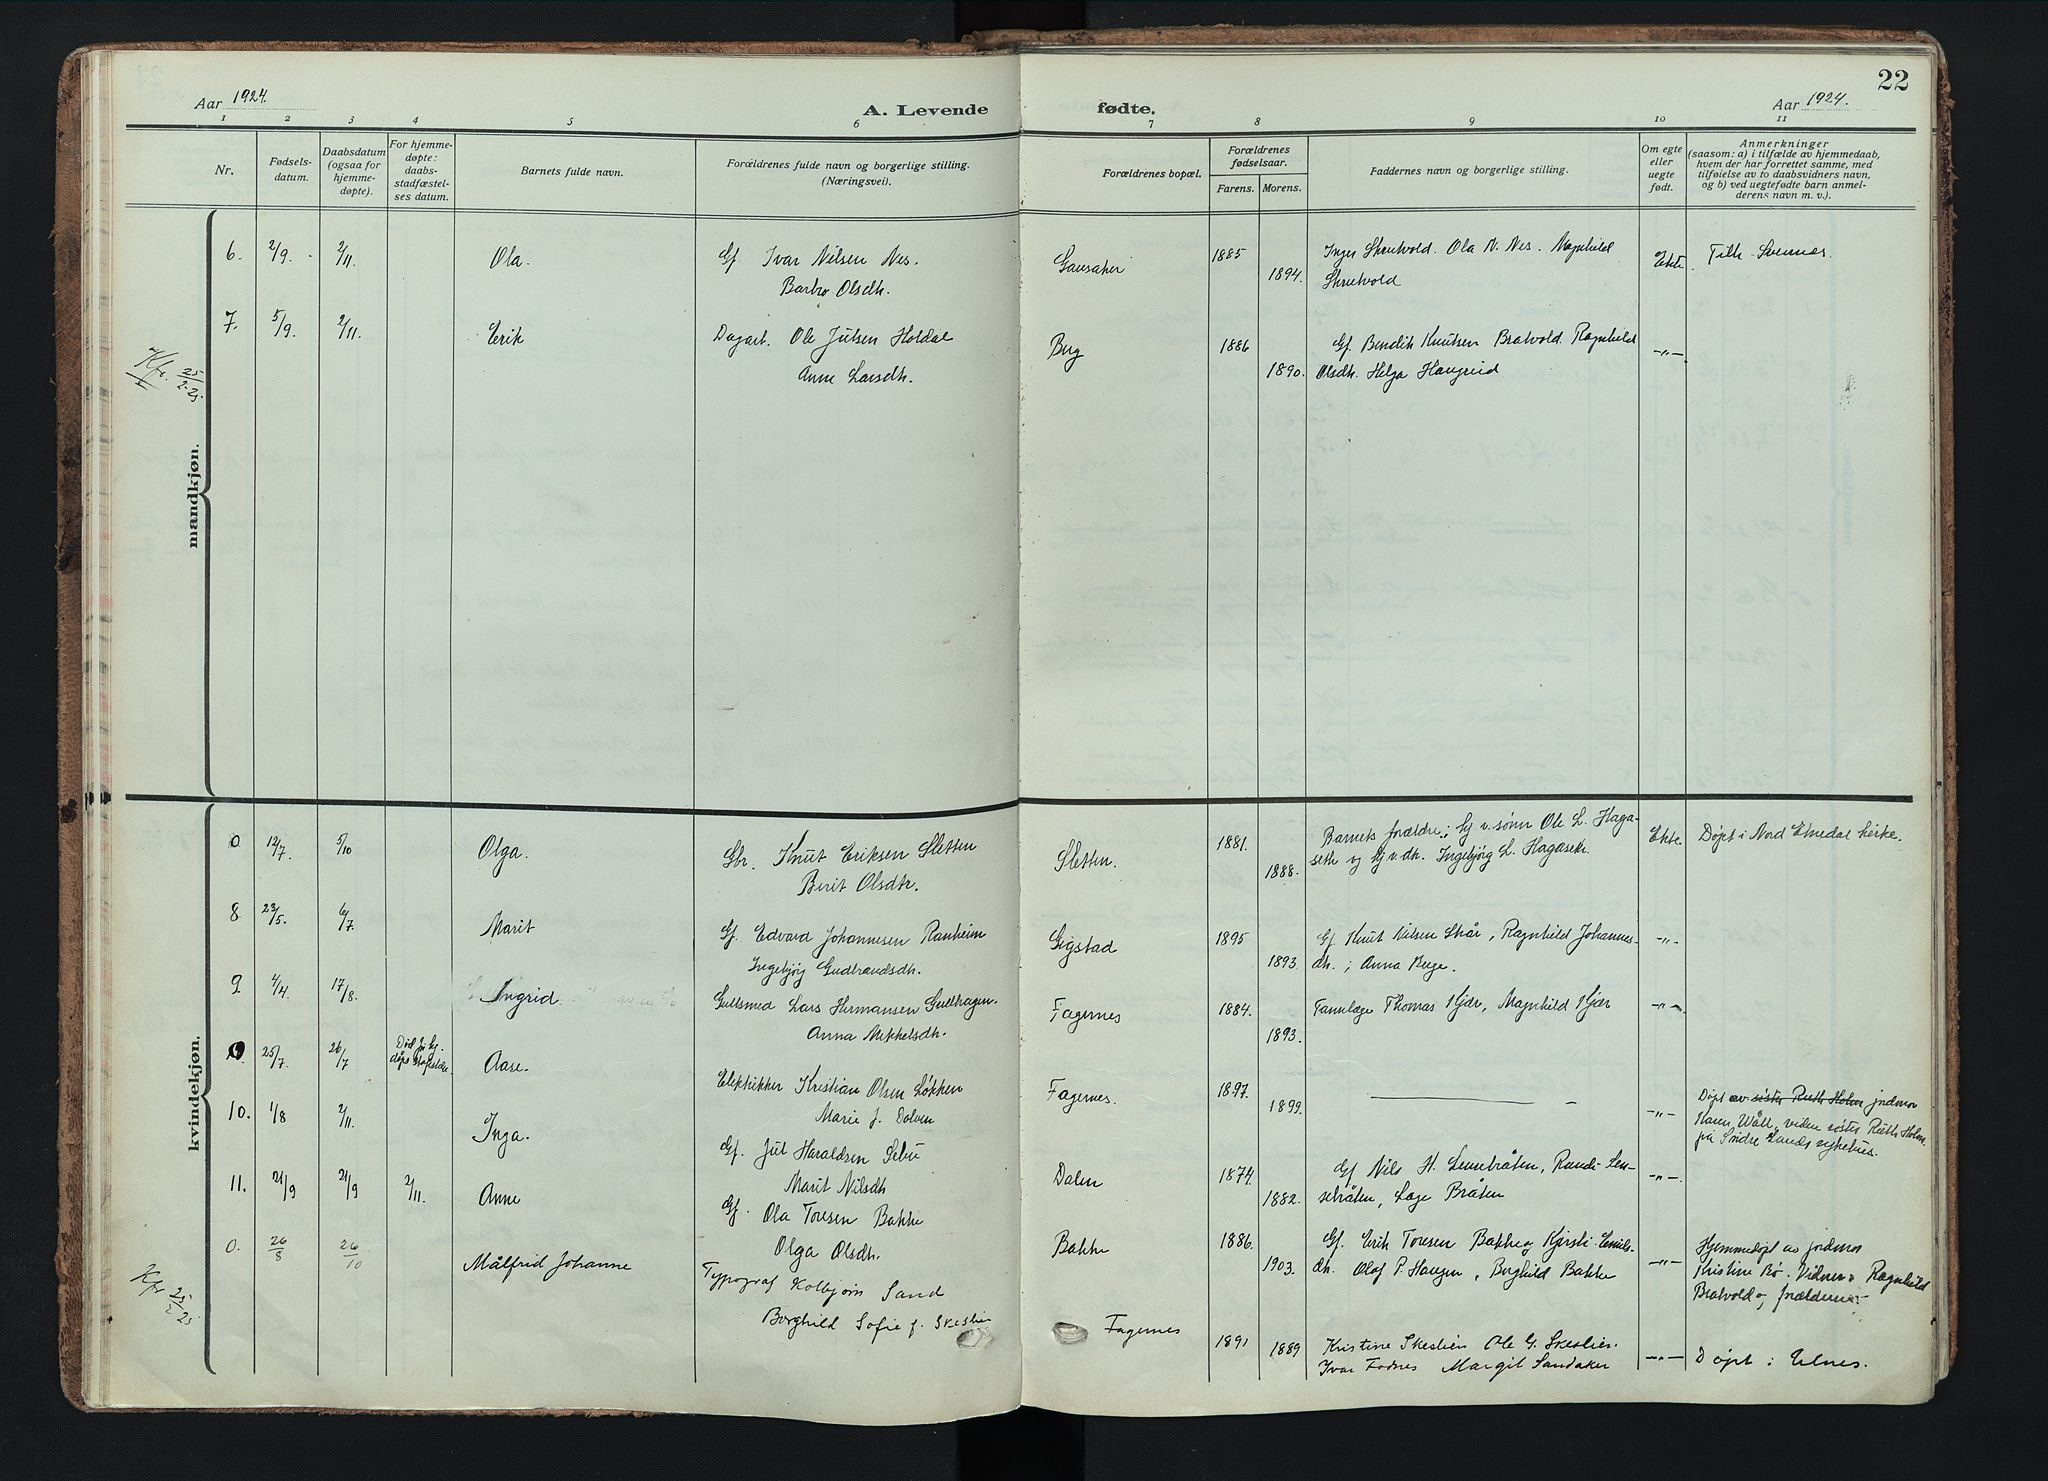 22
Aar 1924.
A. Levende fødte.
Aar 1924.
1 2 3 4 5 6 7 8 9 10 11
Nr.
Fødsels-
datum.
Daabsdatum
(ogsaa for
hjemme-
døpte).
For hjemme-
døpte:
daabs-
stadfæstel-
ses datum.
Barnets fulde navn.
Forældrenes fulde navn og borgerlige stilling.
(Næringsvei).
Forældrenes bopæl.
Forældrenes
fødselsaar.
Farens. Morens.
Faddernes navn og borgerlige stilling.
Om egte
eller
uegte
født.
Anmerkninger
(saasom: a) i tilfælde av hjemmedaab,
hvem der har forrettet samme, med
tilføielse av to daabsvidners navn,
og b) ved uegtefødte barn anmel-
derens navn m. v.).
mandkjøn.
6. 2/9. 2/11. Ola. Gf. Ivar Nilsen Nes. Gausaker 1885 Inger Skrutvold. Ola N. Nes. Magnhild Ekte. Tilh. Svennes.
Barbro Olsdtr. 1894. Skrutvold
7. 5/9. 2/11. Erik Dagarb. Ole Julsen Holdal Berg 1886 Gf. Bendik Knutsen Bratvold. Ragnhild -"-
Anne Larsdtr. 1890. Olsdtr. Helga Haugreid
Kfr. 25/2-25
kvindekjøn.
0 12/7. 5/10 Olga. Gbr. Knut Eriksen Sletten Sletten. 1881. Barnets forældre; Gf v. sønn Ole L. Haga- Ekte. Døpt i Nord Etnedal kirke.
Berit Olsdtr. 1888. seth og Gf v. dtr. Ingebjørg L. Hagaseth.
8 23/5. 6/7. Marit Gf. Edvard Johannesen Ranheim Gigstad 1895 Gf Knut Nilsen Skår, Ragnhild Johannes- -"-
Ingebjørg Gudbrandsdtr. 1893. dtr. ; Anna Berge.
9. 4/4. 17/8. Ingrid. Gullsmed Lars Hermansen Gullhagen. Fagernes 1884. Tannlæge Thomas Kjær, Magnhild Kjær -"-
Anna Mikkelsdtr. 1893.
0. 25/7. 26/7 Aase. Elektriker Kristian Olsen Løkken Fagernes. 1897.
Marie J. Dalen 1899. -"- Døpt av søster Ruth Holm jordmor
Karen Wåll, vidne søster Ruth Holm
på Søndre Lands sykehus.
10. 1/8 2/11. Inga. Gf. Jul Haraldsen Sebu Dalen 1874. Gf Nils H. Lennebråten, Randi Sen- -"-
Marit Nilsdtr 1882. , Lage Bråten
11. 21/9 21/9 2/11. Anne Gf. Ola Toresen Bakke Bakke 1886. Gf. Erik Toresen Bakke og Kjersti Emils- -"- Hjemmedøpt av jordmor
Olga Olsdtr. 1903. dtr. Olaf P. Haugen, Borghild Bakke Kristine Bø. Vidner: Ragnhild
Bratvold og forældrene.
0. 26/8 26/10 Målfrid Johanne Typograf Kolbjørn Sand Fagernes 1891 Kristine Skeslien Ole G. Skeslien. -"- Døpt i Ulnes.
Borghild Sofie f. Skeslien 1889 Ivar Fodnes Margit Sandaker
Kfr 25/2-25